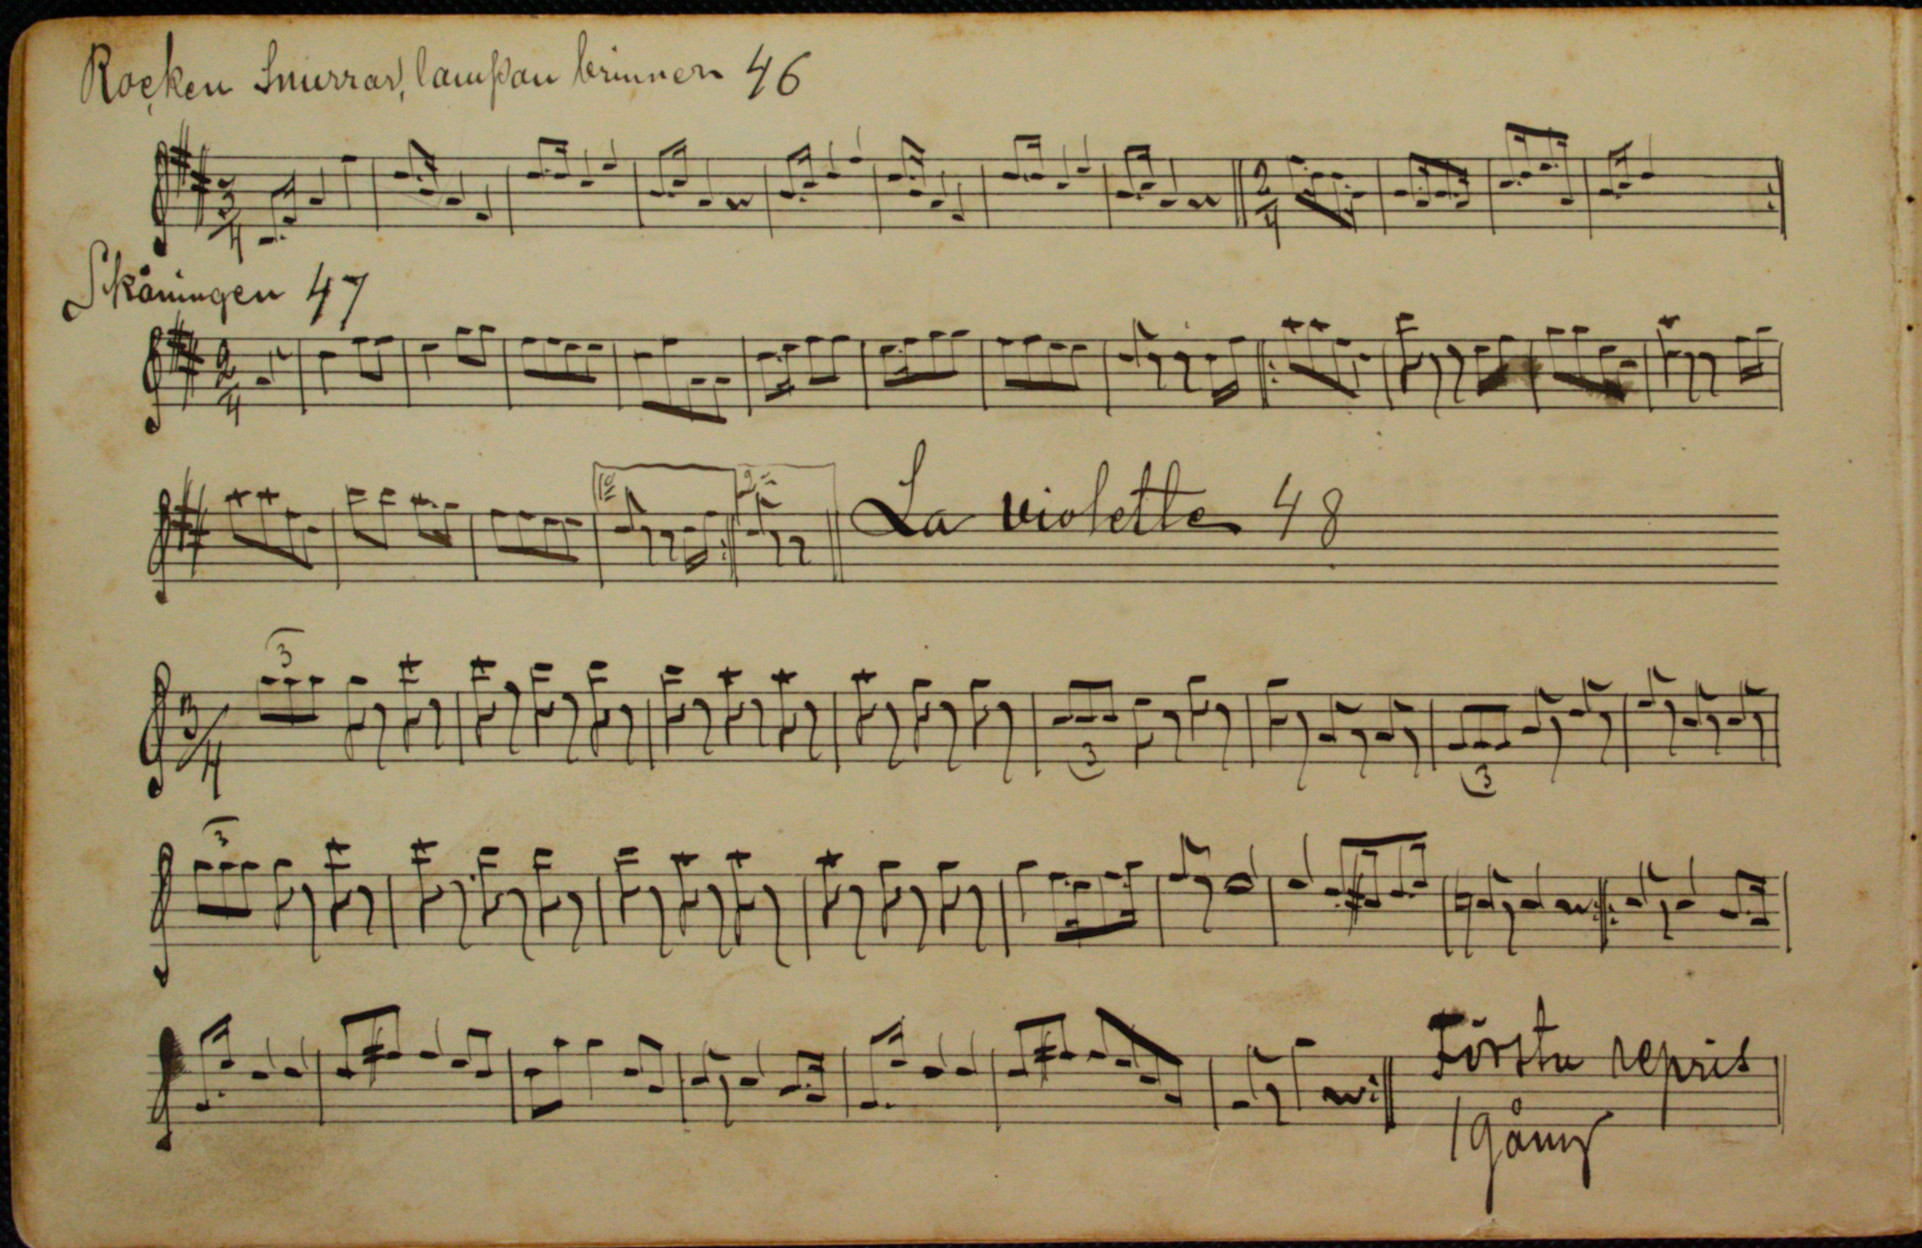 Rocken Snurrar, lampan brinner 46
3/4
2/4
Skåningen 47
2/4
1a 2a
La violette 48
3
3/4
3 3
3
Första repris
1 gång